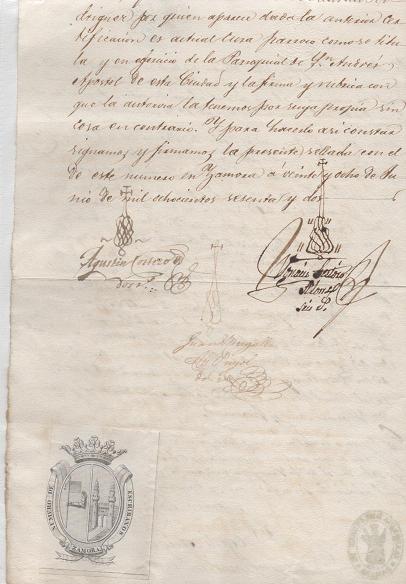 por quien aparece dada la anterior cer
tificacion es actual Cura parroco como se titu
la y en ejercicio de la Parroquial de Sn. Andres
Apostol de esta Ciudad y la firma y rubrica con
que la autoriza la tenemos por suya propia sin
cosa en contrario. Y para hacerlo asi constar
signamos y firmamos la presente sellada con el
de este numero en Zamora á veinte y ocho de Ju
nio de mil ochocientos sesenta y dos
Agustin
Alonso
NUMERO DE ESCRIBANOS
ZAMORA